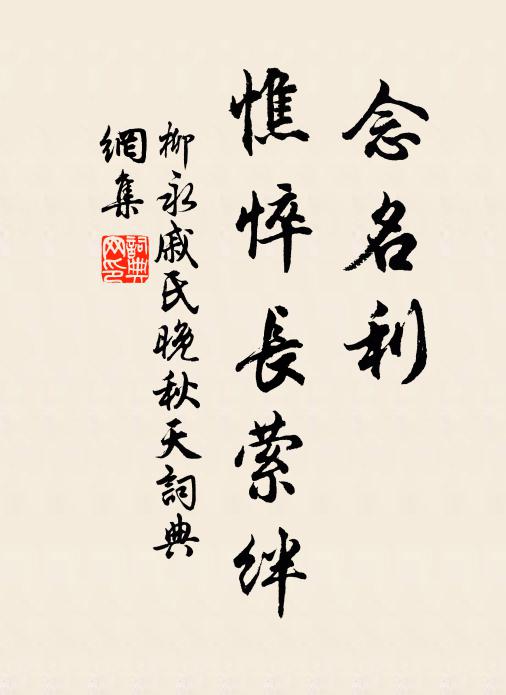 念名利
憔悴長縈絆
柳永戚氏晚秋天詞典
網集
詞典
网印